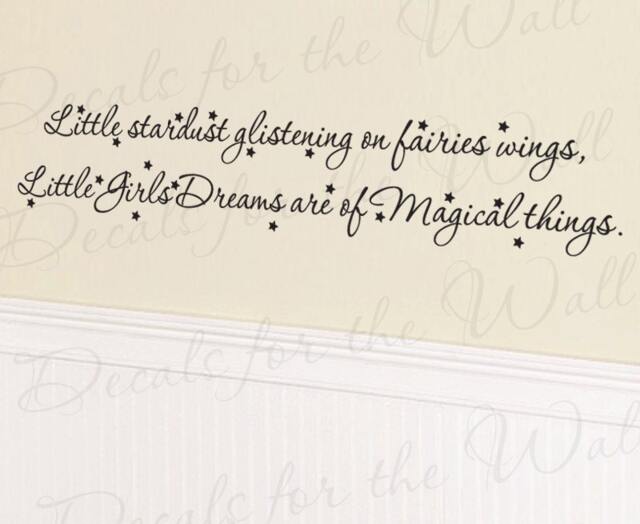 Decals for the Wall
Little stardust glistening on fairies wings,
Little Girls Dreams are of Magical things.
Decals for the Wall
Decals for the Wall
Decals for the Wall